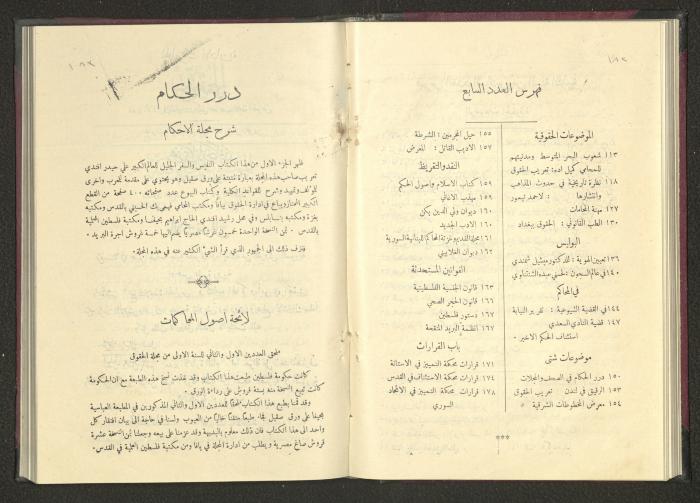 فهرس العدد السابع
الموضوعات الحقوقية
١١٣ شعوب البحر المتوسط ومدنيتهم
للمحامي كيل اده: تعريب الحقوق
١١٨ نظرة تاريخية في حدوث المذاهب
وانتشارها : لاحمد تيمور
١٢٧ مهنة المحاماة
١٣٠ الطب القانوني : الحقوق ببغداد
البوليس
١٣٦ تعيين الهوية : للدكتور ميشيل شمندي
١٤٠ في عالم السجون: لحسني عبده الشنتناوي
في المحاكم
١٤٤ في القضية الشيوعية : تقرير النيابة
١٤٧ قضية النادي السعدي
استئناف الحكم الاخير .
موضوعات شتى
١٥٠ درر الحكام في الصحف والمجلات
١٥٣ الرقيق في لندن تعريب الحقوق
١٥٤ معرض المخطوطات الشرقية »
١٥٥ حيل المجرمين : الشرطة
١٥٧ الاديب القاتل : المعرض
النقد والتقريظ
١٥٩ كتاب الاسلام واصول الحكم
١٥٩ مهذب الاغاني
١٦٠ ديوان ولي الدين يكن
١٦٠ الادب الجديد
١٦١ مجلة القديم وخزنة المحاكم اللبنانية السورية
١٦٢ ديوان الغلاييني
القوانين المستحدثة
١٦٣ قانون الجنسية الفلسطينية
١٦٦ قانون الحجر الصحي
١٦٧ دستور فلسطين
١٦٧ انظمة البريد المنقحة
باب القرارات
١٧١ قرارات محكمة التمييز في الاستانة
١٧٤ قرارات محكمة الاستئناف في القدس
١٧٨ قرارات محكمة التمييز في الاتحاد
السوري
***
درر الحكام
شرح مجلة الاحكام
ظهر الجزء الاول من هذا الكتاب النفيس والسفر الجليل للعالم الكبير علي حيدر افندي
تعريب صاحب هذه المجلة بعبارة متقنة على ورق صقيل وهو يحتوي على مقدمة للمعرب واخرى
للمؤلف وتمهيد وشرح للقواعد الكلية وكتاب البيوع عدد صفحاته ٤٠٠ صفحة من القطع
الكبير الممتاز ويباع في ادارة الحقوق بيافا ومكتب المحامي فهمي بك الحسيني بالقدس ومكتبه
بغزة ومكتبه بنابلس وفي محل رشيد افندي الحاج ابراهيم بحيفا ومكتبة فلسطين العلمية
بالقدس . ثمن النسخة الواحدة خمسون غرشا مصريا يضم اليها خمسة غروش اجرة البريد .
فنزف ذلك الى الجمهور الذي قرأ الشيء الكثير عنه في هذه المجلة.
لائحة اصول المحاكمات
ملحق العددين الاول والثاني للسنة الاولى من مجلة الحقوق
كانت حكومة فلسطين طبعت هذا الكتاب وقد نفدت نسخ هذه الطبعة مع ان الحكومة
كانت تبيع النسخة منه بستة غروش على رداءة الورق .
وقد قمنا بطبع هذا الكتاب ملحقا للعددين الاول والثاني المذكورين في المطبعة العباسية
بحيفا على ورق صقيل فجاء طبعا متقنا خاليا من العيوب ولسنا في حاجة الى بيان افتقار كل
واحد الى هذا الكتاب فان ذلك معلوم بالبديهية وقد عزمنا على بيعه وجعلنا ثمن النسخة عشرة
قروش صاغ مصرية ويطلب من ادارة المجلة في يافا ومن مكتبة فلسطين العلمية في القدس .